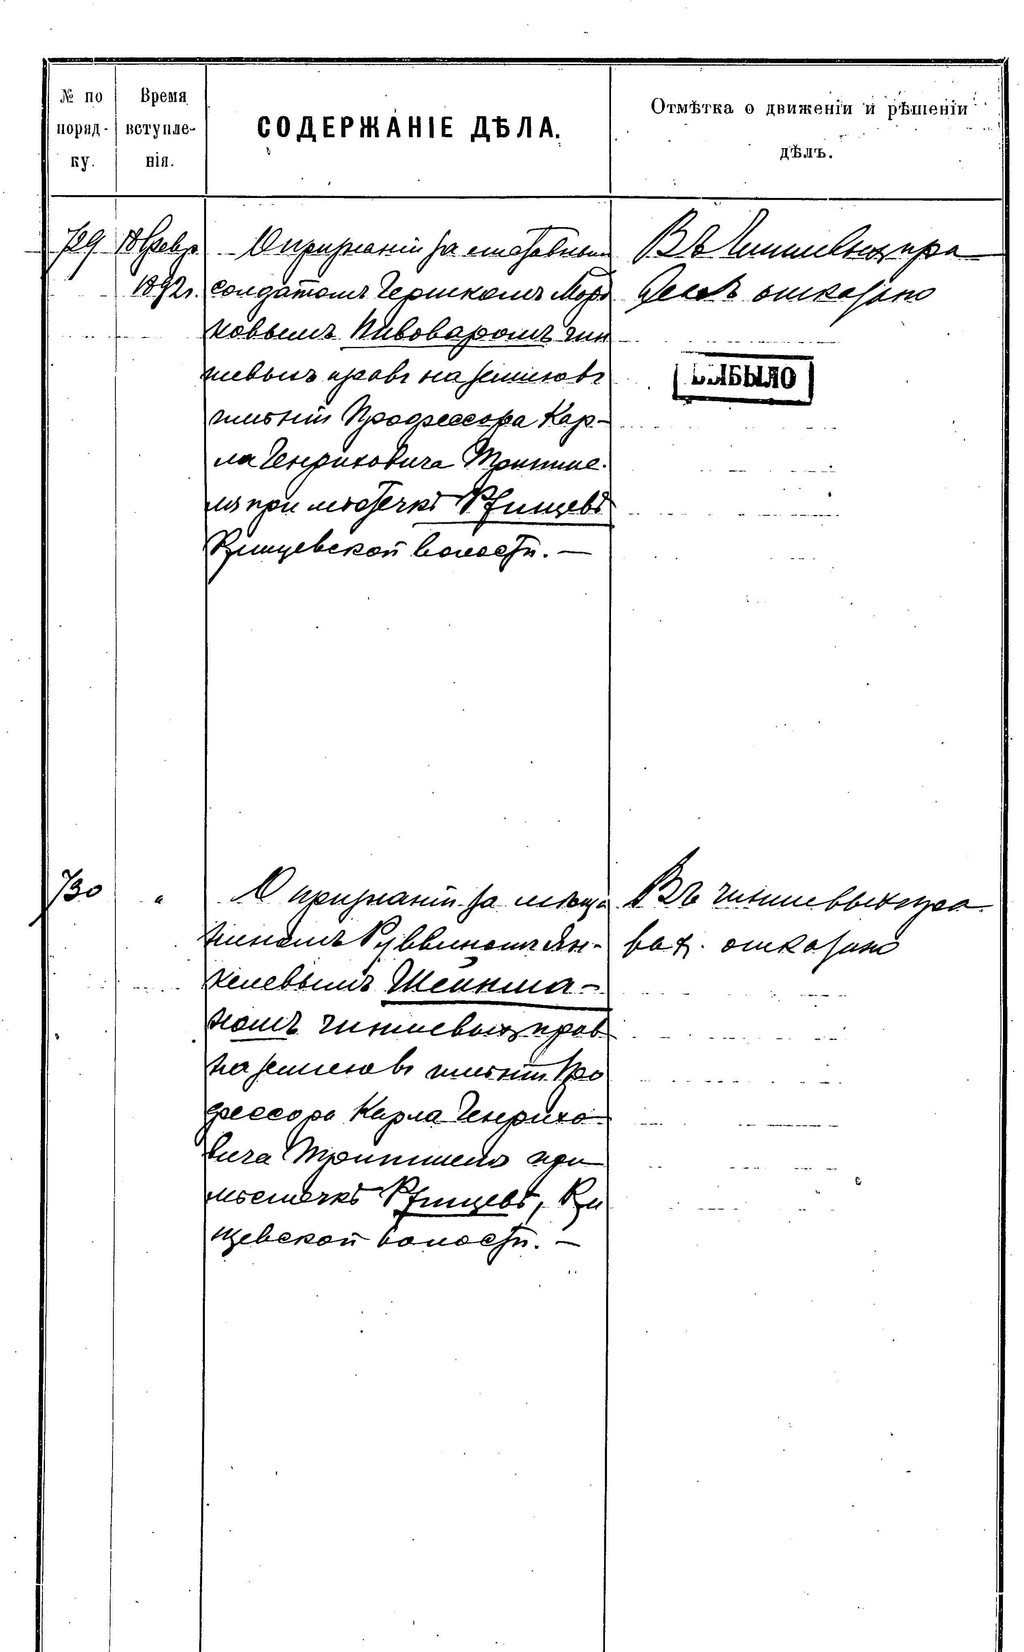 № по
поряд-
ку.
Время
вступле-
нія.
СОДЕРЖАНІЕ ДѢЛА.
Отмѣтка о движеніи и рѣшеніи
дѣлъ.
729
18 Февр.
1892 г.
О признаніи за отставным
солдатомъ Гершкомъ Мор
ковымъ Пивоваромъ чин
шевыхъ правъ на землю въ
имѣніи Профессора Кар-
ла Генриховича Тритше-
ля при мѣстечкѣ Ржищевѣ
Ржищевской волости. —
Въ Чиншевыхъ пра
вахъ отказано
ВЫБЫЛО
730
"
О признаніи за мѣща
ниномъ Рувиномъ Ян-
келевымъ Шейнма-
номъ чиншевыхъ правъ
на землю въ имѣніи Про
фессора Карла Генрихо
вича Тритшеля при
мѣстечкѣ Ржищевѣ, Ржи
щевской волости. —
Въ чиншевыхъ пра
вах. отказано